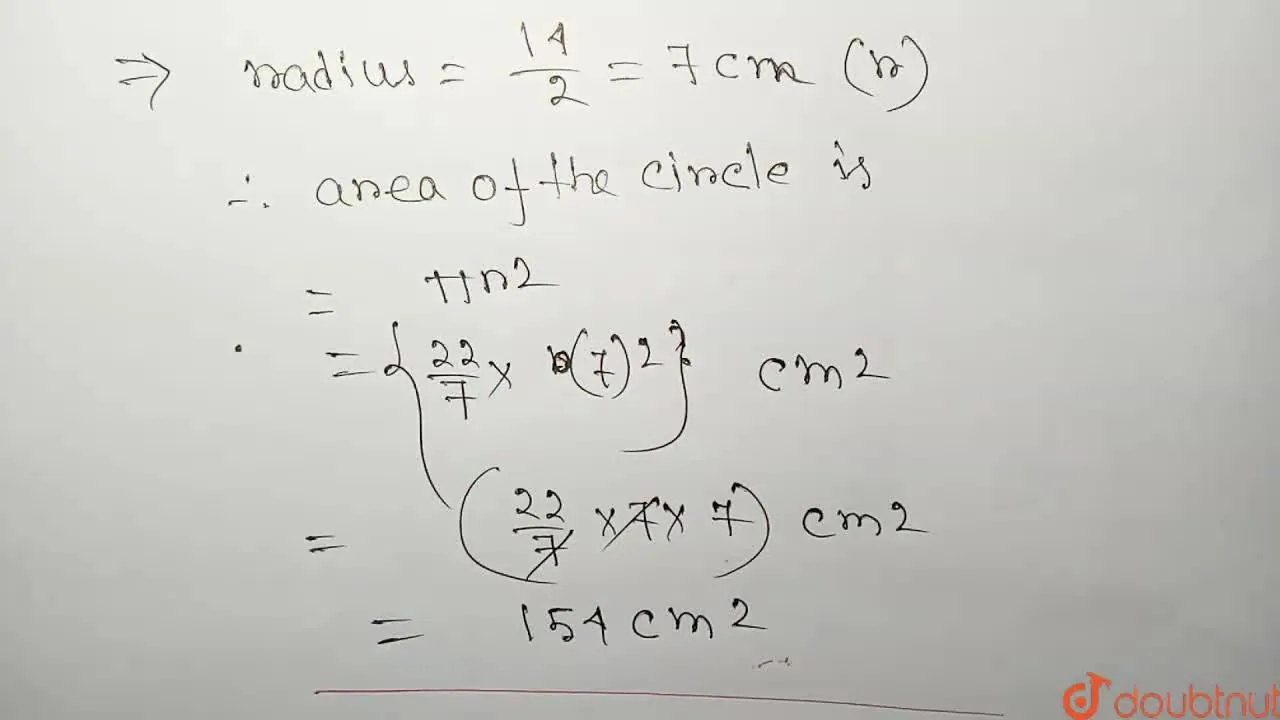 ⇒ radius = 14/2 = 7 cm (r)
∴ area of the circle is
= πr2
= {22/7 × (7)2} cm2
= (22/7 × 7 × 7) cm2
= 154 cm2
doubtnut